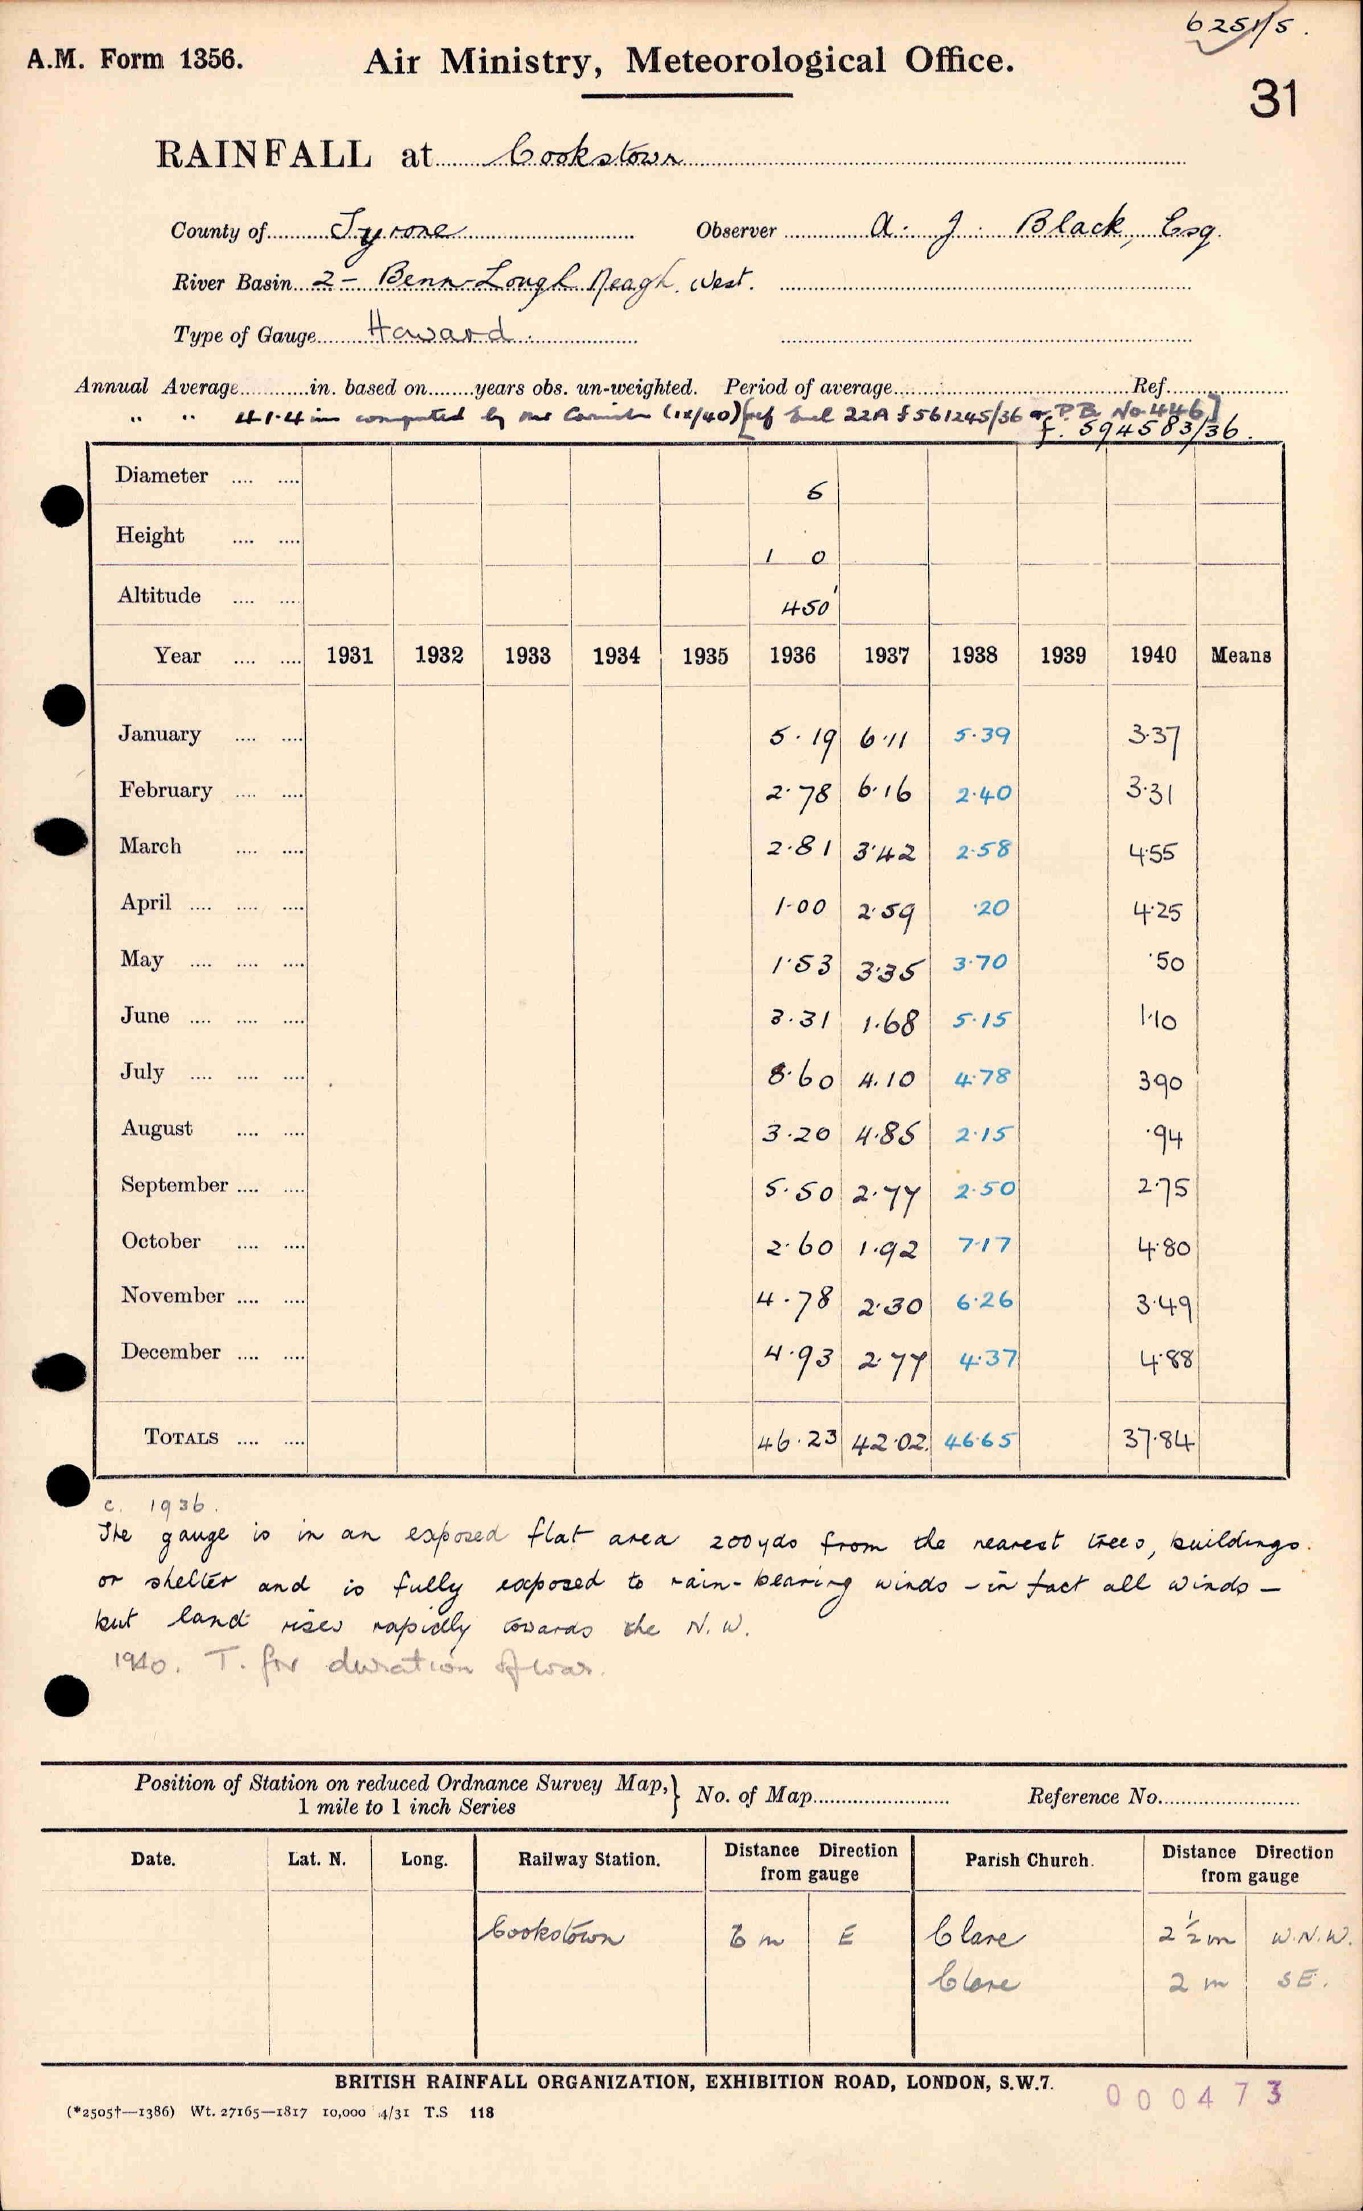 6251/5.
A.M. Form 1356. Air Ministry, Meteorological Office.
31
RAINFALL at Cookstown
County of Tyrone Observer A. J. Black, Esq.
River Basin 2 - Benn-Lough Neagh West.
Type of Gauge Howard.
Annual Average in. based on years obs. un-weighted. Period of average Ref.
" " 41.4 in computed by (12/40) [ref 22A f 561245/36 or P.B. No. 446]
f. 594583/36.
Diameter 5
Height 1 0
Altitude 450'
Year 1931 1932 1933 1934 1935 1936 1937 1938 1939 1940 Means
January 5.19 6.11 5.39 3.37
February 2.78 6.16 2.40 3.31
March 2.81 3.42 2.58 4.55
April 1.00 2.59 .20 4.25
May 1.53 3.35 3.70 .50
June 3.31 1.68 5.15 1.10
July 8.60 4.10 4.78 3.90
August 3.20 4.85 2.15 .94
September 5.50 2.77 2.50 2.75
October 2.60 1.92 7.17 4.80
November 4.78 2.30 6.26 3.49
December 4.93 2.77 4.37 4.88
TOTALS 46.23 42.02 46.65 37.84
c. 1936.
The gauge is in an exposed flat area 200 yds from the nearest trees, buildings
or shelter and is fully exposed to rain-bearing winds - in fact all winds -
but land rises rapidly towards the N.W.
1940. T. for duration of war.
Position of Station on reduced Ordnance Survey Map, } No. of Map Reference No.
1 mile to 1 inch Series
Date. Lat. N. Long. Railway Station. Distance Direction from gauge Parish Church. Distance Direction from gauge
Cookstown 6 m E Clare 2½ m W.N.W.
Clare 2 m SE.
BRITISH RAINFALL ORGANIZATION, EXHIBITION ROAD, LONDON, S.W.7.
000473
(*2505†—1386) Wt. 27165—1817 10,000 4/31 T.S 118